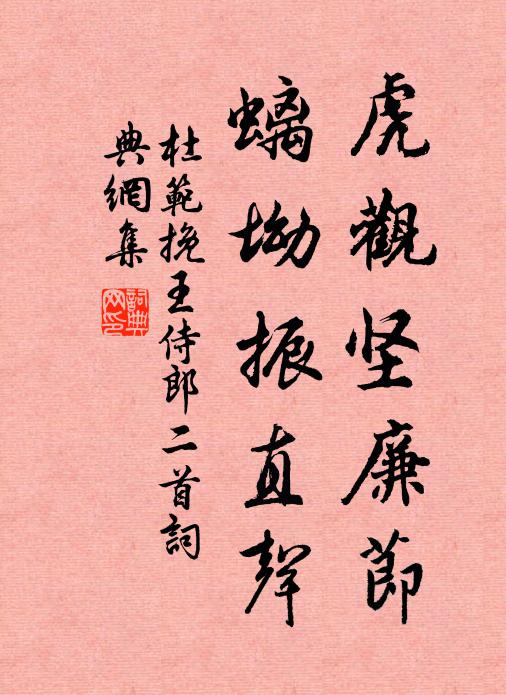 虎觀坚廉節
螭坳振直聲
杜範挽王侍郎二首詞
典網集
詞典网印